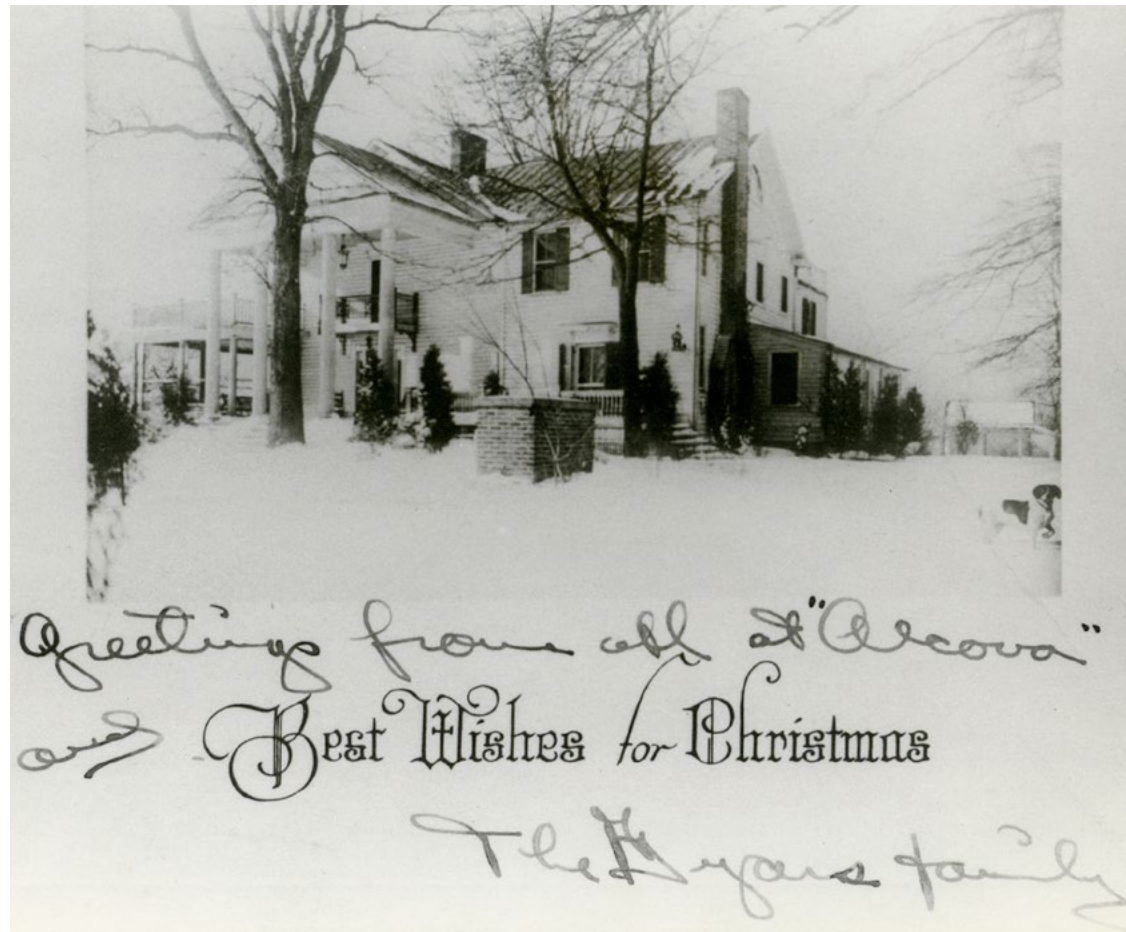 Greetings from all at "Alcova"
and Best Wishes for Christmas
The Byars family